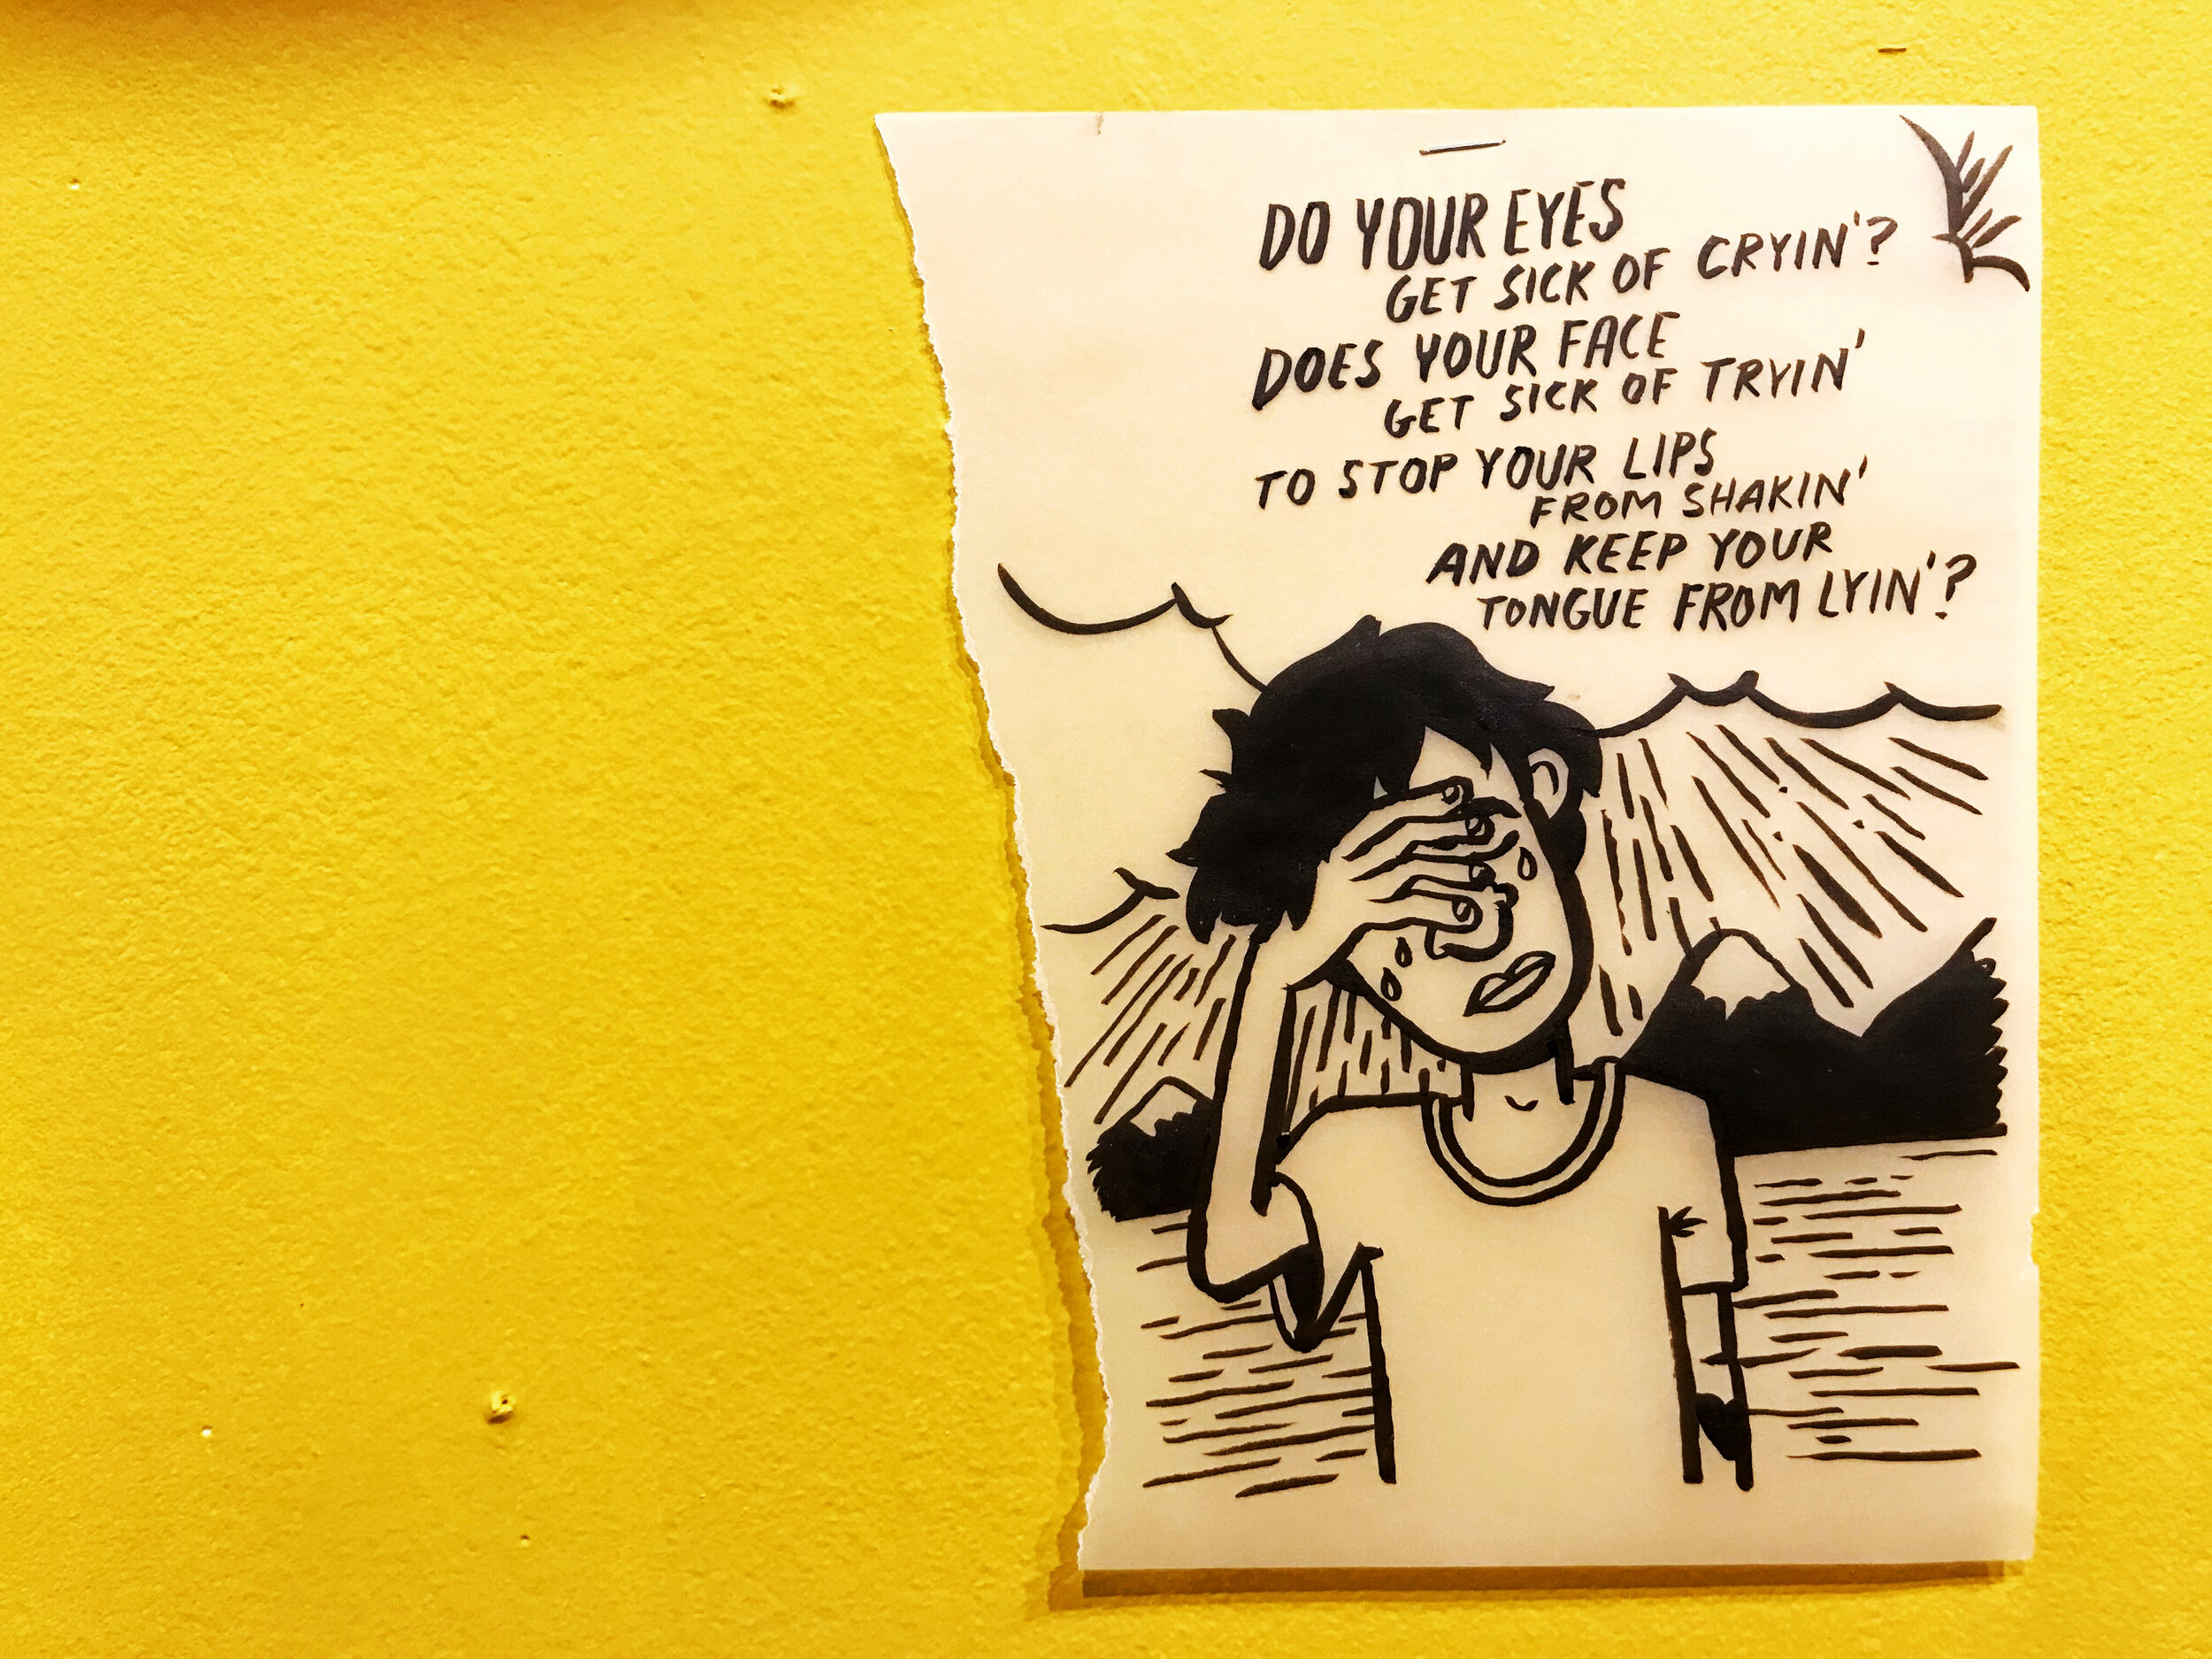 DO YOUR EYES
GET SICK OF CRYIN'?
DOES YOUR FACE
GET SICK OF TRYIN'
TO STOP YOUR LIPS
FROM SHAKIN'
AND KEEP YOUR
TONGUE FROM LYIN'?